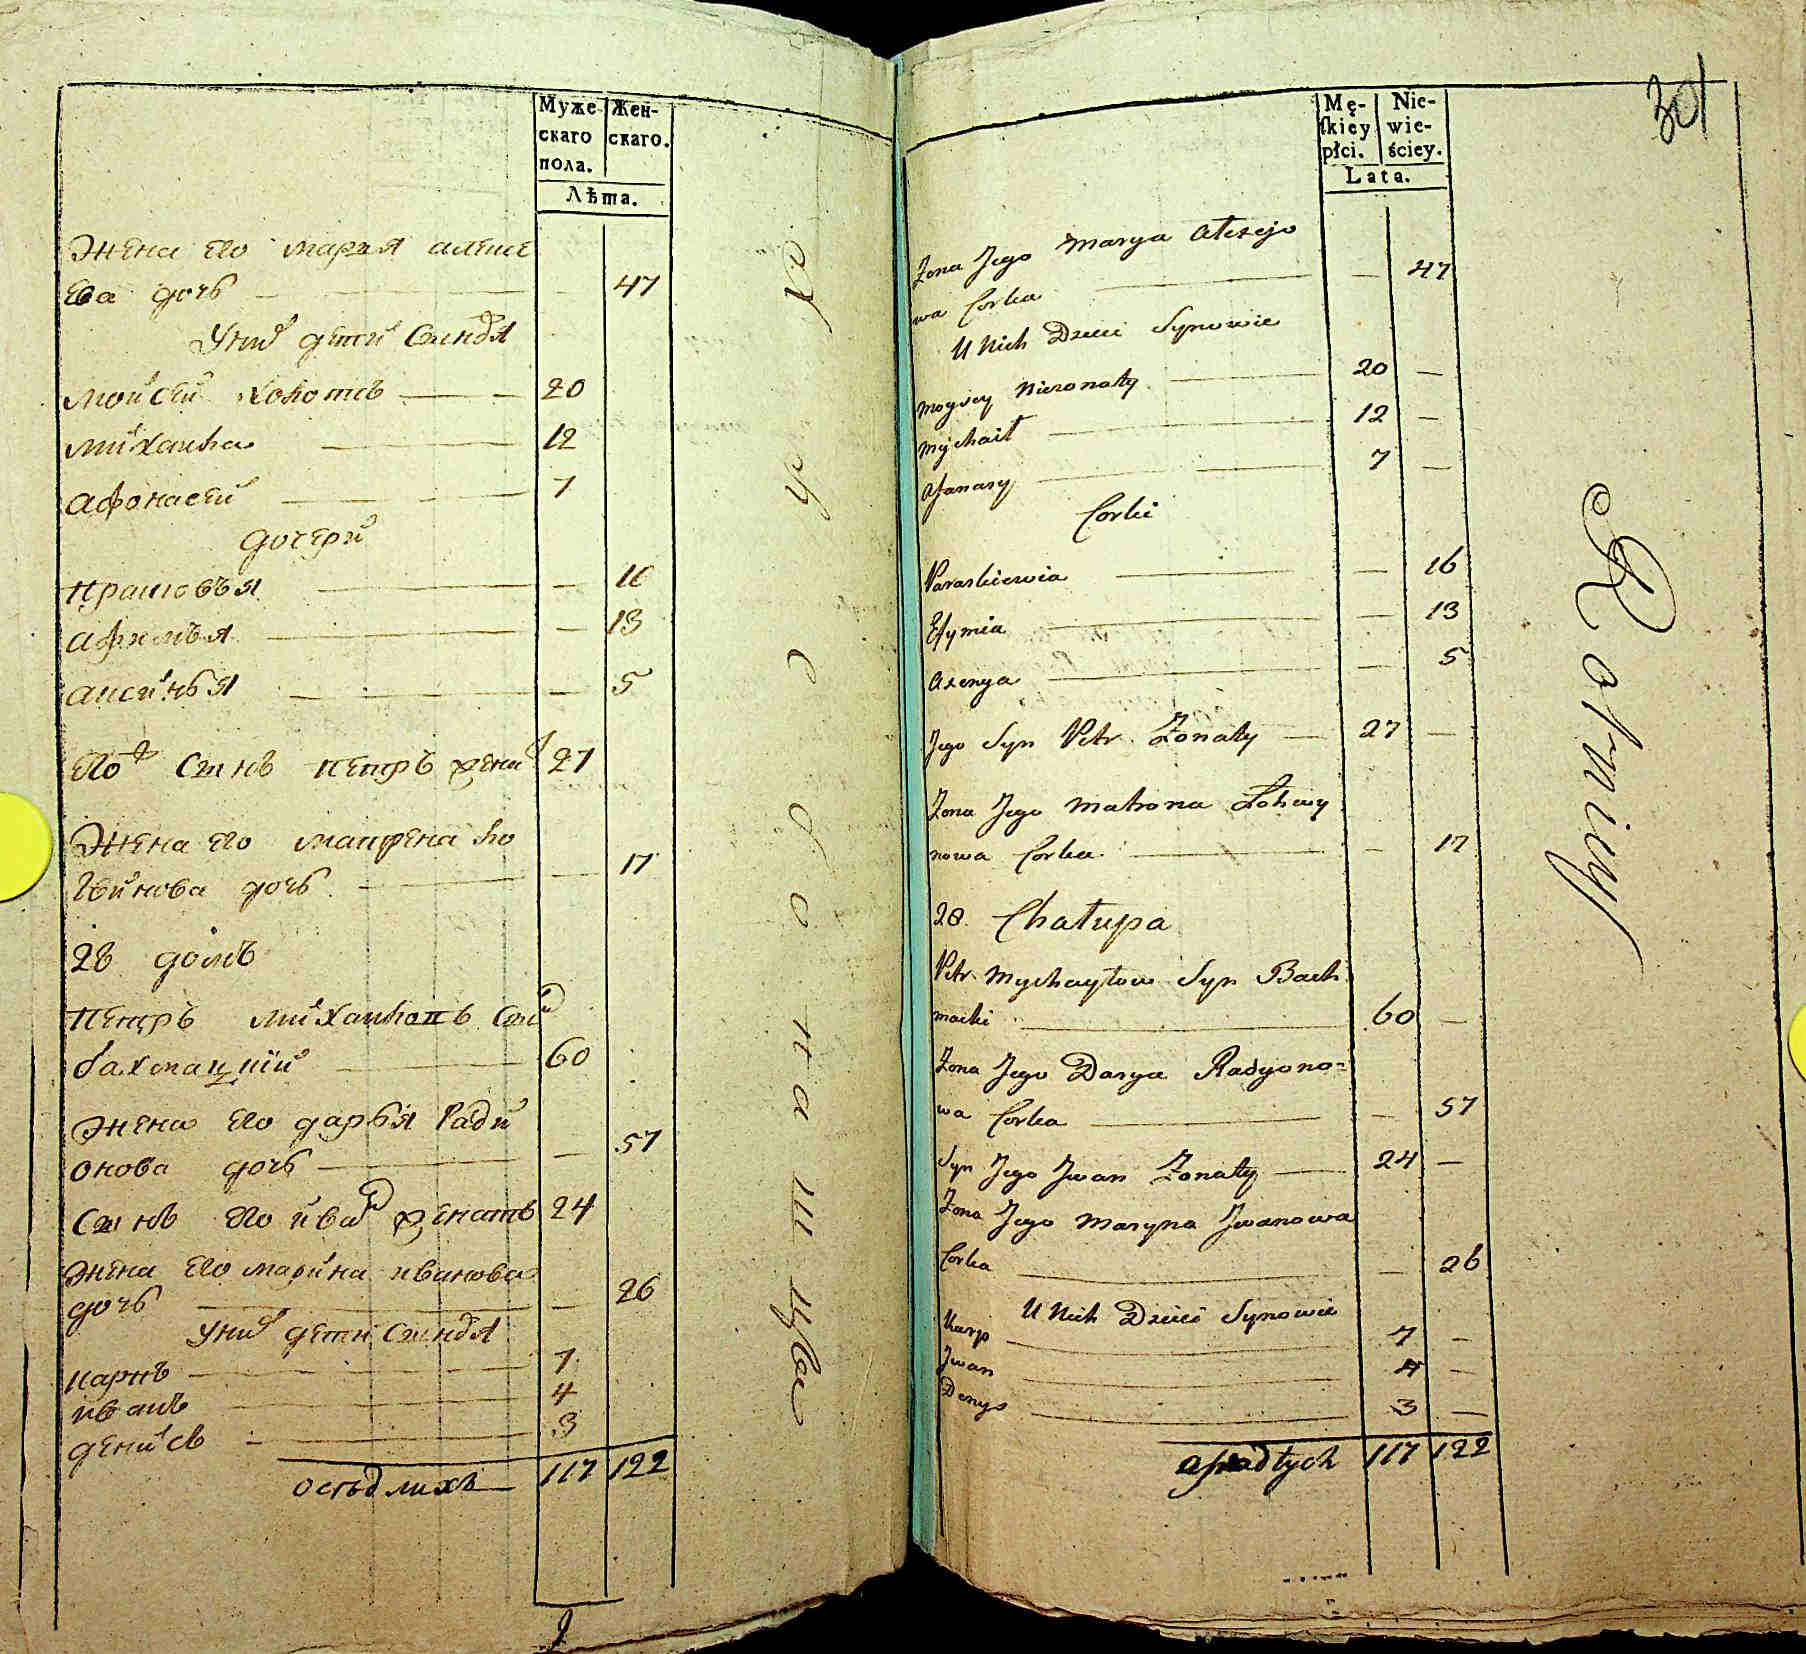 Муже- Жен-
скаго скаго.
пола.
Лѣта.
Жена его марья алексе
ева дочь 47
У них дети Синовя
мойсей холотъ 20
михайла 12
афонасей 7
дочери
прасковья 16
афимья 13
аксинья 5
его Синъ петръ женат 27
Жена его матрена ло
гвинова дочь 17
28 домъ
петръ михайловъ Син
бахмацкий 60
жена его дарья Ради
онова дочь 57
Синъ его иван женатъ 24
жена его марина иванова
дочь 26
У них дети Синовя
карпъ 7
иванъ 4
денисъ 3
оседлихъ 117 122
301
Mę- Nie-
ſkiey wie-
płci. ściey.
Lata.
Zona Jego Marya Alexeje
wa Corka 47
U Nich Dzieci Synowie
Moysey Niezonaty 20
Mychail 12
Afanasy 7
Corki
Paraskiewia 16
Efymia 13
Axenya 5
Jego Syn Petr Zonaty 27
Zona Jego Matrona Łohwy
nowa Corka 17
28. Chałupa
Petr Mychayłow Syn Bach
macki 60
Zona Jego Darya Radyono=
wa Corka 57
Syn Jego Jwan Zonaty 24
Zona Jego Maryna Jwanowa
Corka 26
U Nich Dzieci Synowie
Karp 7
Jwan 4
Denys 3
Osiadłych 117 122
Rotmicy